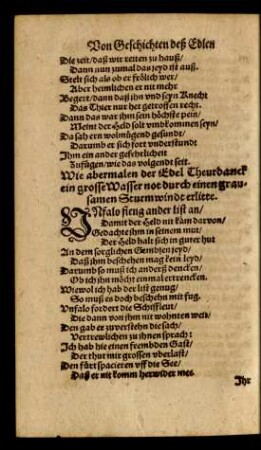 Von Geschichten deß Edlen
Die zeit/daß wir reiten zu hauß/
Dann nun zumal das jeyd ist auß.
Stelt sich als ob er frölich wer/
Aber heimlichen er nit mehr
Begert/dann daß ihn vnd seyn Knecht
Das Thier nur het getroffen recht.
Dann das war ihm sein höchste pein/
Meint der Held solt vmbkommen seyn/
Da sah ern wolmügend gesundt/
Darumb er sich fort vnderstundt
Ihm ein ander gefehrlicheit
Zufügen/wie das volgendt seit.
Wie abermalen der Edel Theurdanck
ein grosse Wasser not durch einen grau-
samen Sturmwindt erlitte.
VNfalo fieng ander list an/
Damit der Held nit käm darvon/
Gedachte ihm in seinem mut/
Der Held halt sich in guter hut
An dem sorglichen Gembsen jeyd/
Daß ihm beschehen mag kein leyd/
Darumb so muß ich anderß dencken/
Ob ich ihn möcht einmal ertrencken/
Wiewol ich hab der list genug/
So muß es doch beschehn mit fug.
Vnfalo fordert die Schiffleut/
Die dann von ihm nit wohnten weit/
Den gab er zu verstehn die sach/
Vertrewlichen zu ihnen sprach:
Ich hab hie einen frembden Gast/
Der thut mir grossen vberlast/
Den fürt spacieren vff die See/
Daß er nit komm herwider mee.
Ihr